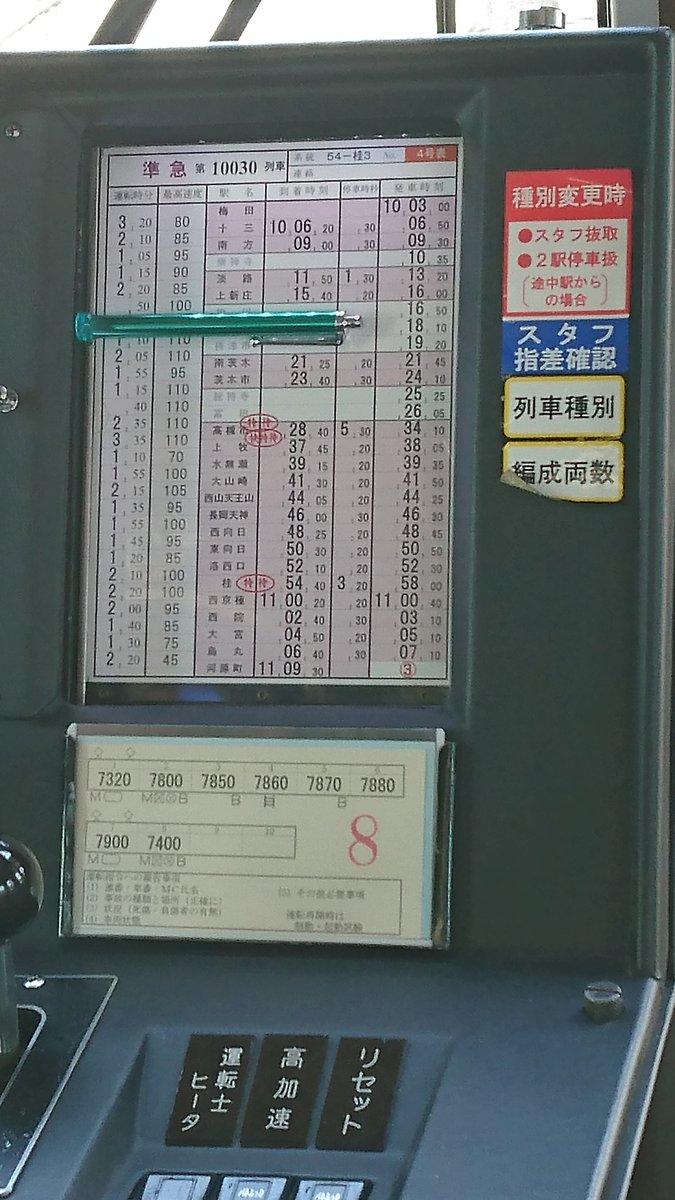 準急 第 10030 列車 系統 54-桂3 No. 4号表
連絡
運転時分 最高速度 駅名 到着時刻 停車時秒 発車時刻
梅田 10 03 00
3 20 80 十三 10 06 20 30 06 50
2 10 85 南方 09 00 30 09 30
1 05 95 崇禅寺 10 35
1 15 90 淡路 11 50 1 30 13 20
2 20 85 上新庄 15 40 20 16 00
50 100 16 50
18 10
10 110 19 20
2 05 110 南茨木 21 25 20 21 45
1 55 95 茨木市 23 40 30 24 10
1 15 110 総持寺 25 25
40 110 富田 26 05
2 35 110 高槻市 特待 28 40 5 30 34 10
3 35 110 上牧 特特待 37 45 20 38 05
1 10 70 水無瀬 39 15 20 39 35
1 55 100 大山崎 41 30 20 41 50
2 15 105 西山天王山 44 05 20 44 25
1 35 95 長岡天神 46 00 30 46 30
1 55 100 西向日 48 25 20 48 45
1 45 95 東向日 50 30 20 50 50
1 20 85 洛西口 52 10 20 52 30
2 10 100 桂 特待 54 40 3 20 58 00
2 20 100 西京極 11 00 20 20 11 00 40
2 00 95 西院 02 40 30 03 10
1 40 85 大宮 04 50 20 05 10
1 30 75 烏丸 06 40 30 07 10
2 20 45 河原町 11 09 30 ③
種別変更時
●スタフ抜取
●2駅停車扱
(途中駅からの場合)
スタフ
指差確認
列車種別
編成両数
1 2 3 4 5 6
7320 7800 7850 7860 7870 7880
9 10
7900 7400
8
運転指令への報告事項
(1) 列番・車番・MC氏名
(2) 事故の種類と箇所 (正確に)
(3) 状況 (死傷・負傷者の有無)
(4) 車両状態
(5) その他必要事項
運転再開時は
制動・起動試験
運転士
ヒータ
高加速
リセット